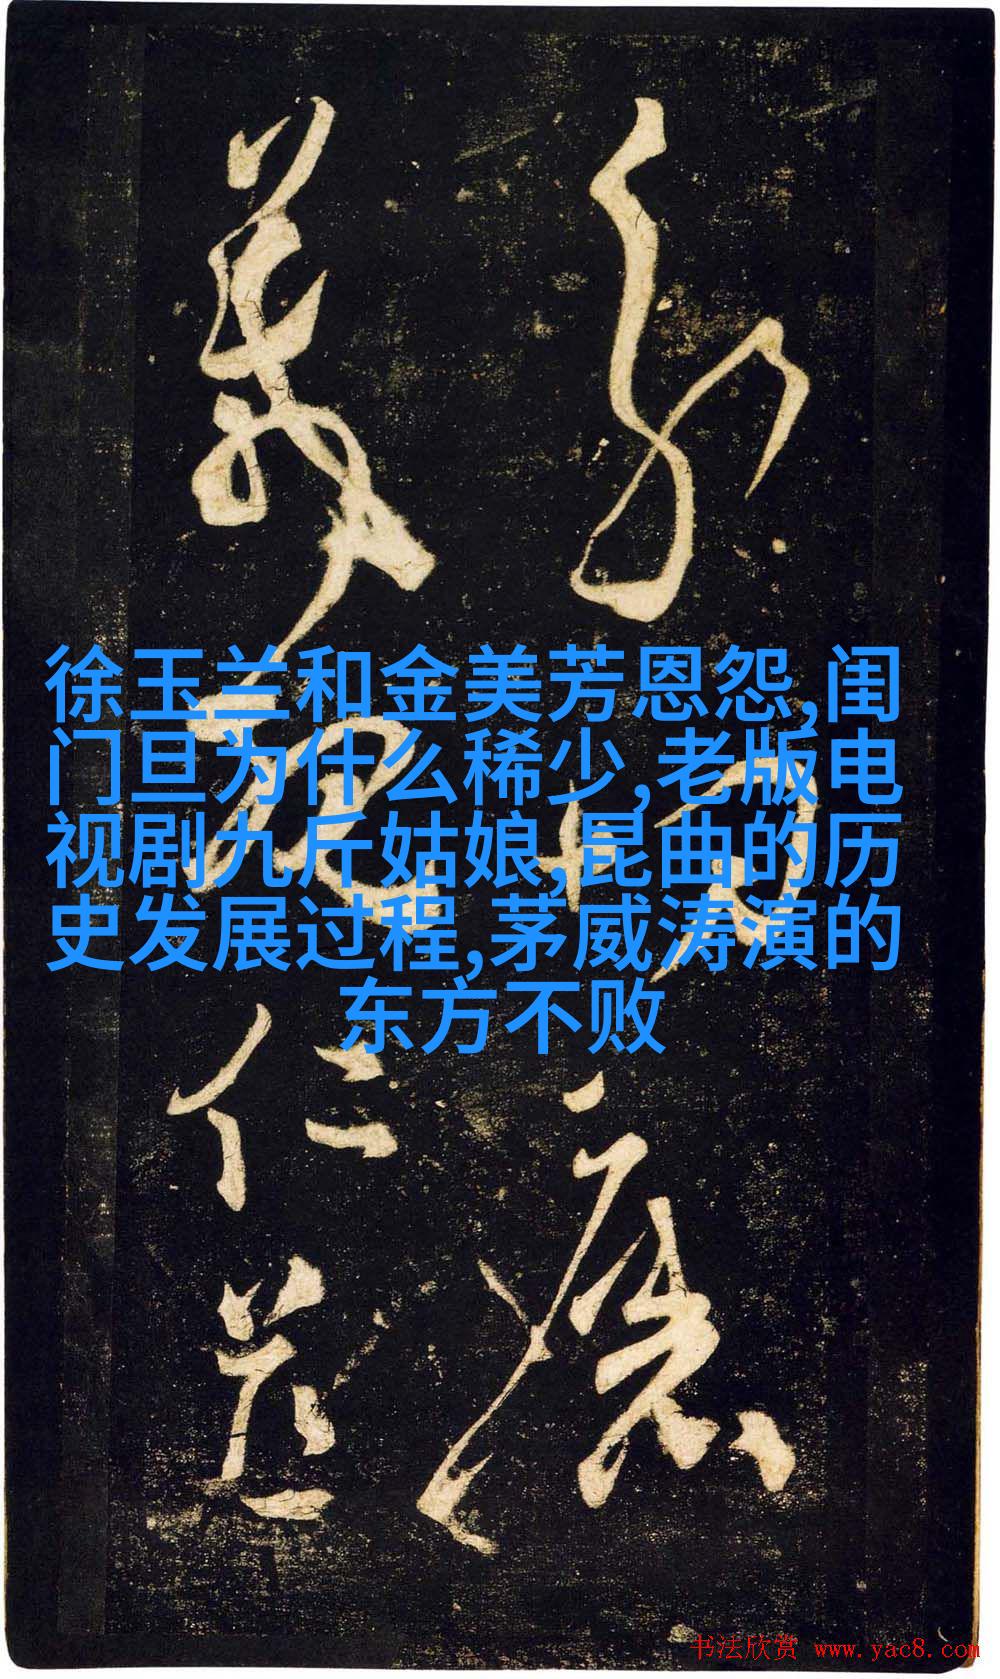 分切磨
箴規仁慈
徐玉兰和金美芳恩怨,闺
门旦为什么稀少,老版电
视剧九斤姑娘,昆曲的历
史发展过程,茅威涛演的
东方不败
书法欣赏 www.yac8.com